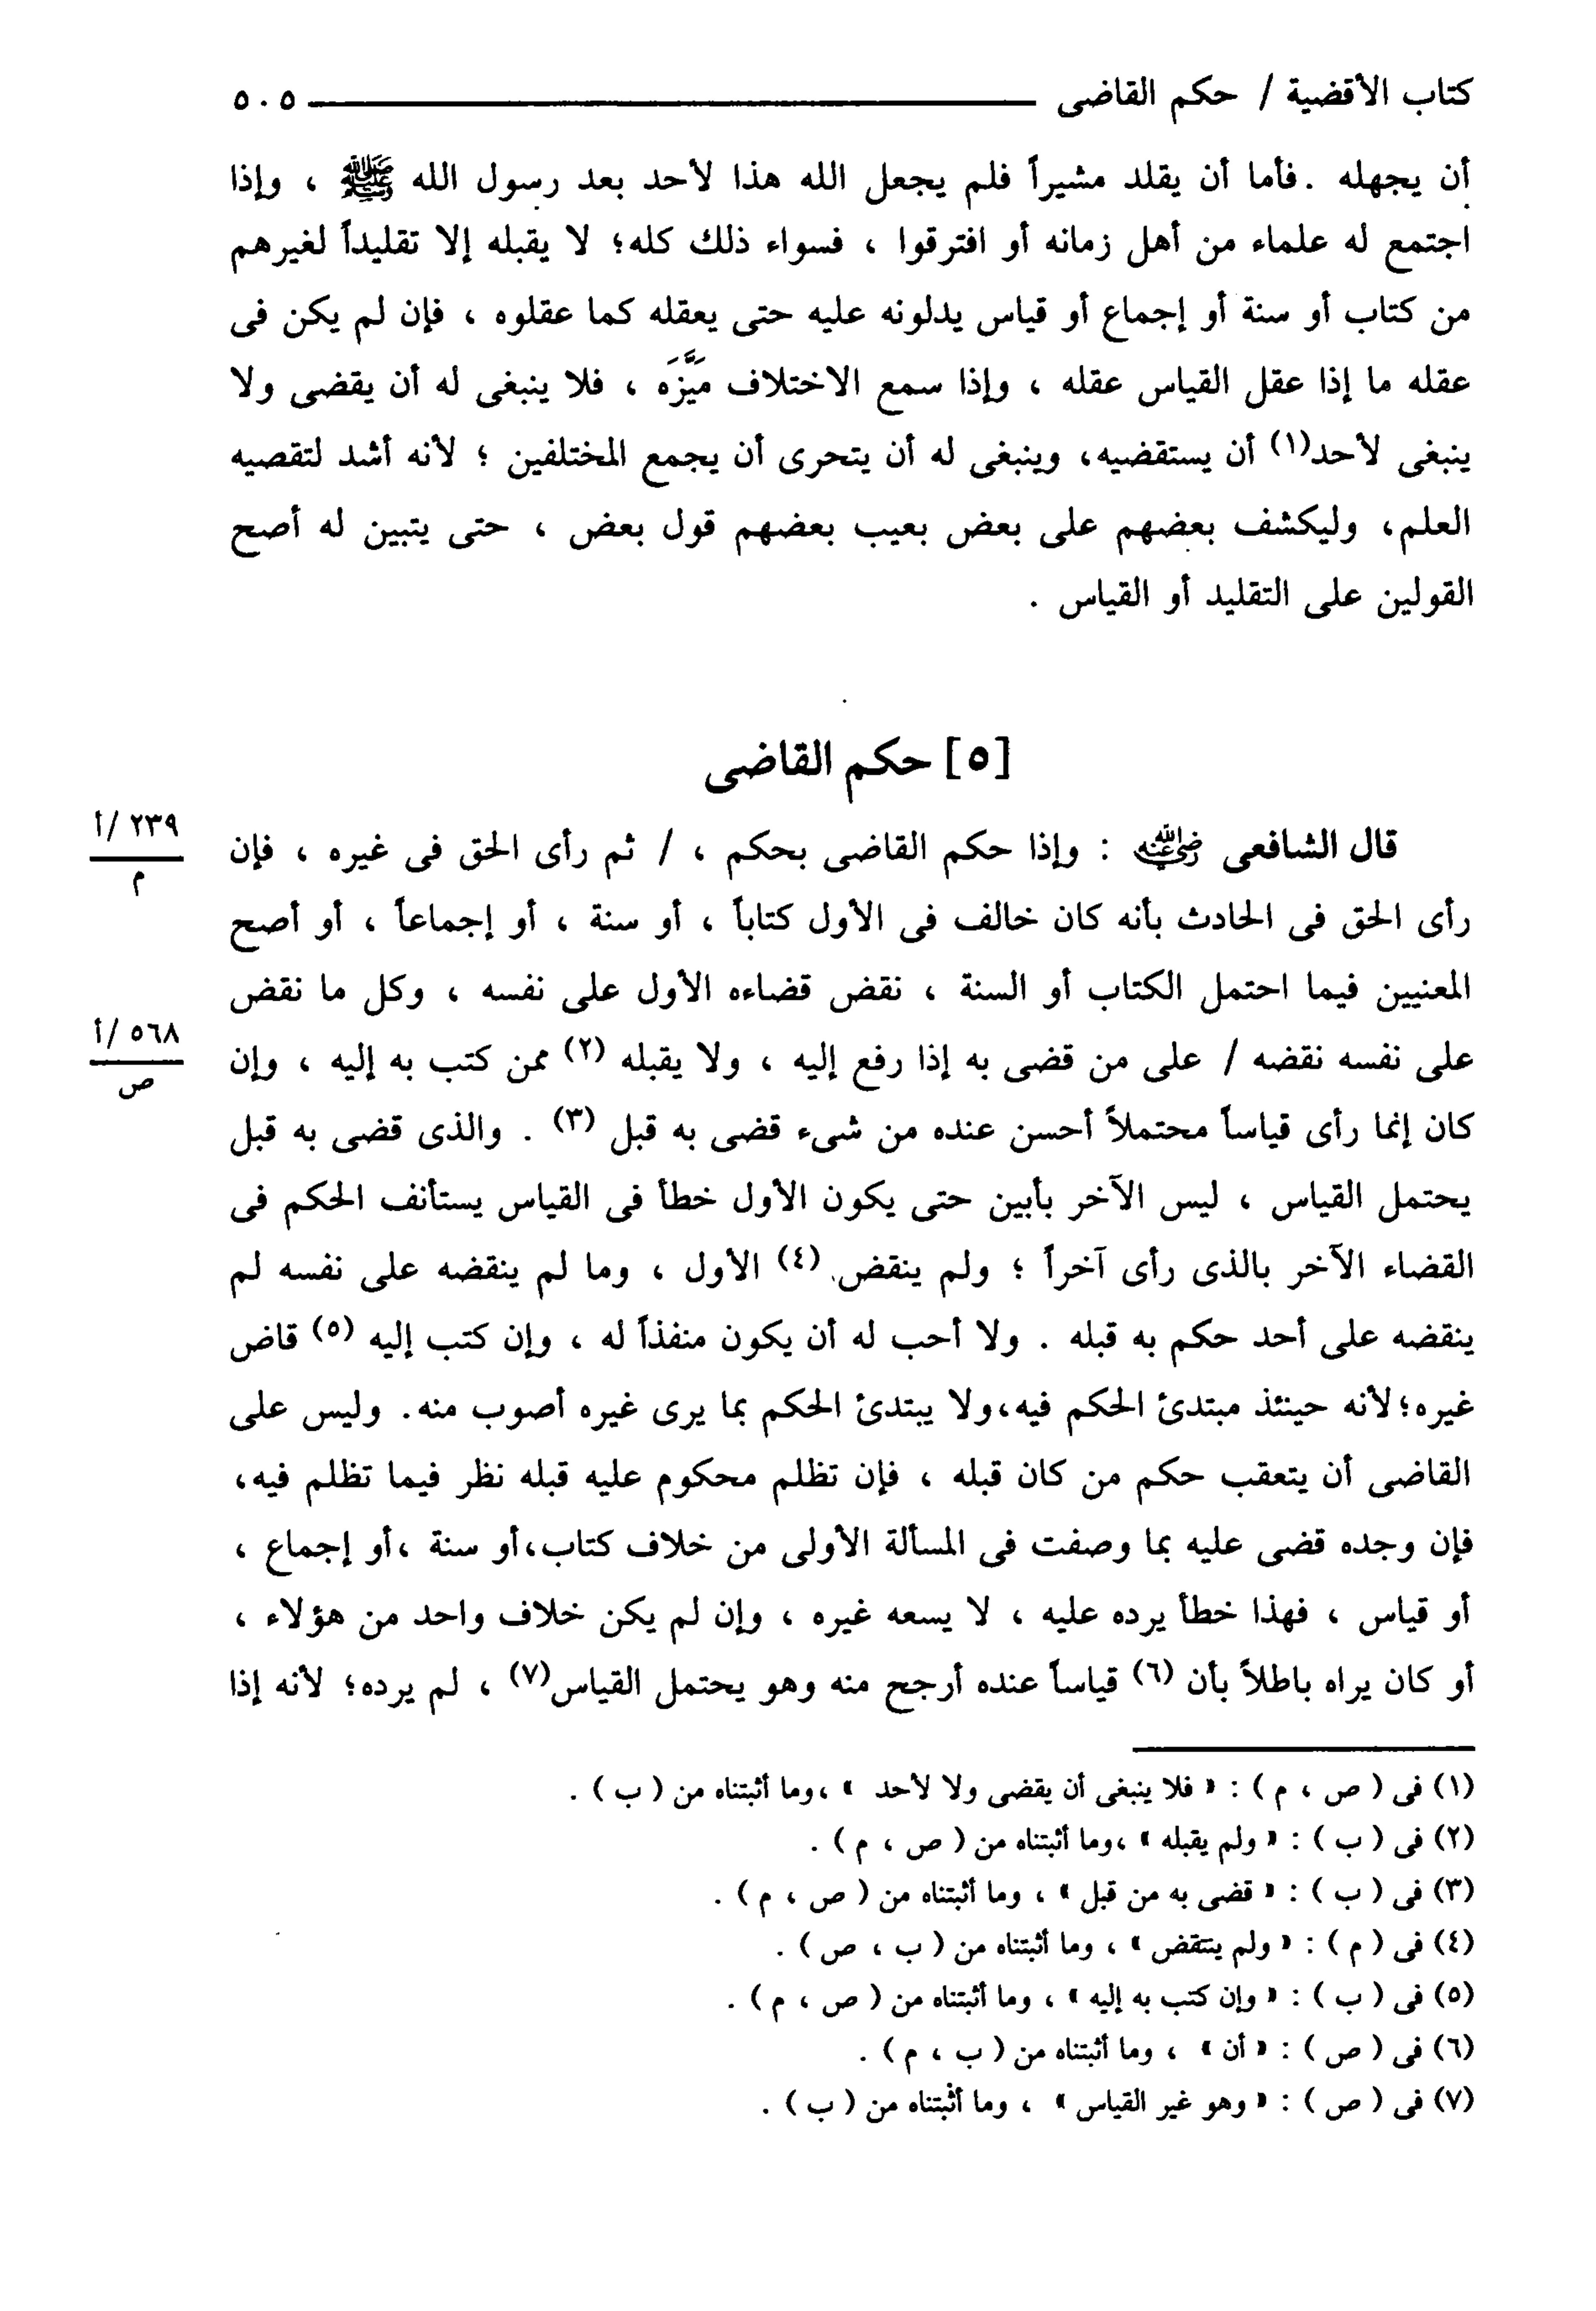 كتاب الأقضية / حكم القاضى ٥٠٥
أن يجهله . فأما أن يقلد مشيراً فلم يجعل الله هذا لأحد بعد رسول الله ﷺ ، وإذا
اجتمع له علماء من أهل زمانه أو افترقوا ، فسواء ذلك كله؛ لا يقبله إلا تقليداً لغيرهم
من كتاب أو سنة أو إجماع أو قياس يدلونه عليه حتى يعقله كما عقلوه ، فإن لم يكن فى
عقله ما إذا عقل القياس عقله ، وإذا سمع الاختلاف مَيَّزَه ، فلا ينبغى له أن يقضى ولا
ينبغى لأحد(١) أن يستقضيه، وينبغى له أن يتحرى أن يجمع المختلفين ؛ لأنه أشد لتقصيه
العلم، وليكشف بعضهم على بعض بعيب بعضهم قول بعض ، حتى يتبين له أصح
القولين على التقليد أو القياس .
[٥] حكم القاضى
قال الشافعى رضي الله عنه : وإذا حكم القاضى بحكم ، / ثم رأى الحق فى غيره ، فإن
٢٣٩/أ
م
رأى الحق فى الحادث بأنه كان خالف فى الأول كتاباً ، أو سنة ، أو إجماعاً ، أو أصح
المعنيين فيما احتمل الكتاب أو السنة ، نقض قضاءه الأول على نفسه ، وكل ما نقض
على نفسه نقضه / على من قضى به إذا رفع إليه ، ولا يقبله (٢) ممن كتب به إليه ، وإن
٥٦٨/أ
ص
كان إنما رأى قياساً محتملاً أحسن عنده من شىء قضى به قبل (٣) . والذى قضى به قبل
يحتمل القياس ، ليس الآخر بأبين حتى يكون الأول خطأ فى القياس يستأنف الحكم فى
القضاء الآخر بالذى رأى آخراً ؛ ولم ينقض (٤) الأول ، وما لم ينقضه على نفسه لم
ينقضه على أحد حكم به قبله . ولا أحب له أن يكون منفذاً له ، وإن كتب إليه (٥) قاض
غيره؛لأنه حينئذ مبتدئ الحكم فيه،ولا يبتدئ الحكم بما يرى غيره أصوب منه. وليس على
القاضى أن يتعقب حكم من كان قبله ، فإن تظلم محكوم عليه قبله نظر فيما تظلم فيه،
فإن وجده قضى عليه بما وصفت فى المسألة الأولى من خلاف كتاب،أو سنة ،أو إجماع ،
أو قياس ، فهذا خطأ يرده عليه ، لا يسعه غيره ، وإن لم يكن خلاف واحد من هؤلاء ،
أو كان يراه باطلاً بأن (٦) قياساً عنده أرجح منه وهو يحتمل القياس(٧) ، لم يرده؛ لأنه إذا
(١) فى ( ص ، م ) : « فلا ينبغى أن يقضى ولا لأحد » ،وما أثبتناه من ( ب ) .
(٢) فى ( ب ) : « ولم يقبله » ،وما أثبتناه من ( ص ، م ) .
(٣) فى ( ب ) : « قضى به من قبل » ، وما أثبتناه من ( ص ، م ) .
(٤) فى ( م ) : « ولم ينتقض » ، وما أثبتناه من ( ب ، ص ) .
(٥) فى ( ب ) : « وإن كتب به إليه » ، وما أثبتناه من ( ص ، م ) .
(٦) فى ( ص ) : « أن » ، وما أثبتناه من ( ب ، م ) .
(٧) فى ( ص ) : « وهو غير القياس » ، وما أثبتناه من ( ب ) .